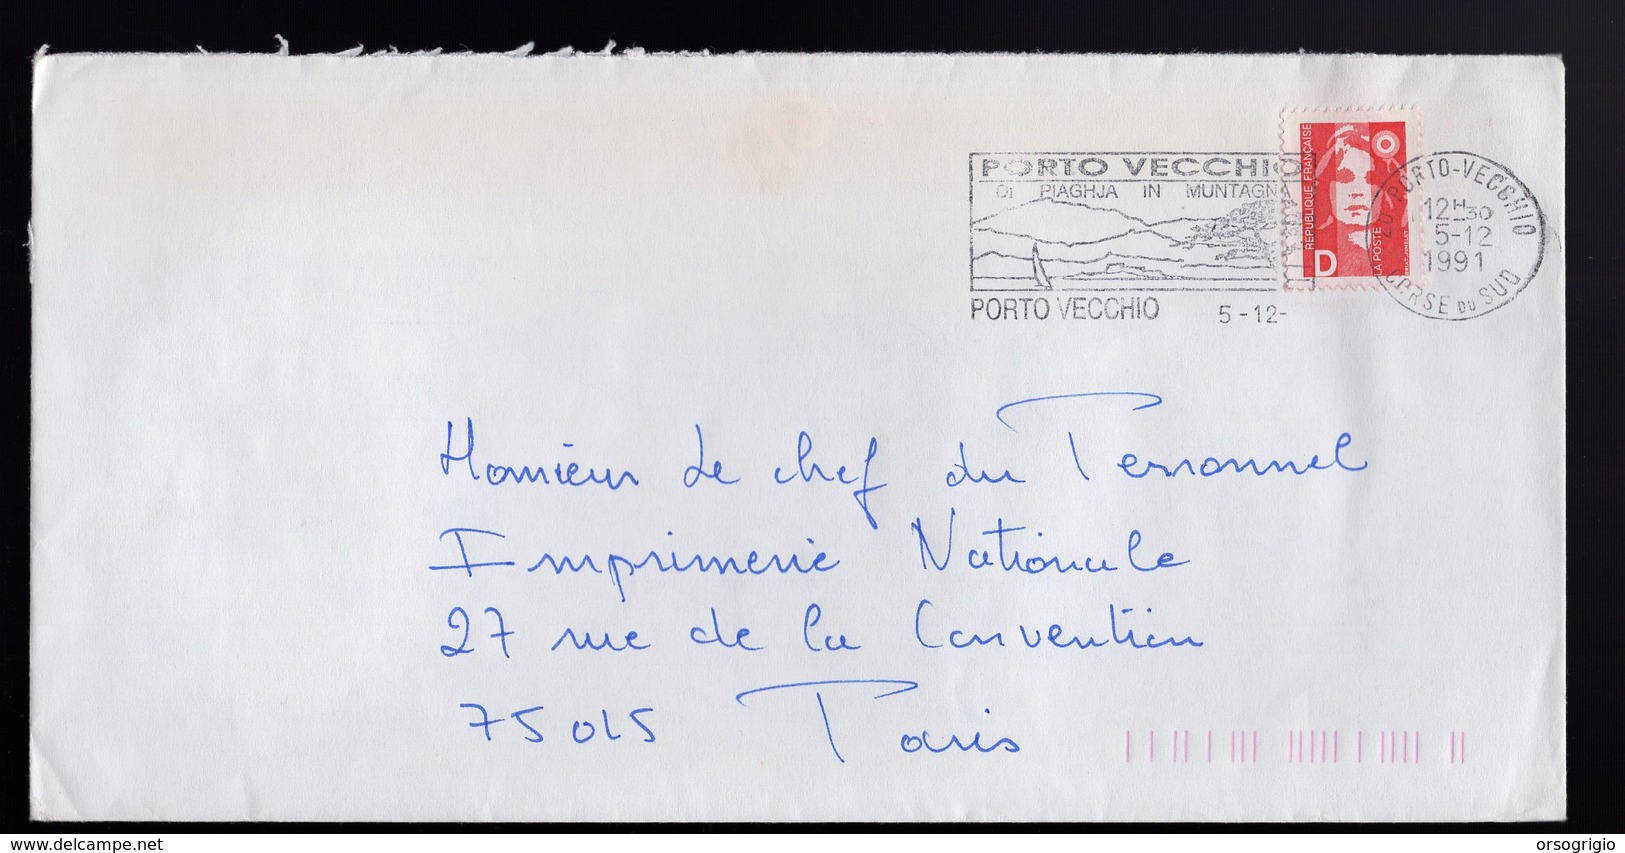 PORTO VECCHIO
DI PIAGHJA IN MUNTAGNA
PORTO VECCHIO 5-12-
RÉPUBLIQUE FRANÇAISE
D
LA POSTE
PORTO-VECCHIO
12H30
5-12
1991
CORSE DU SUD
Monsieur Le chef du Personnel
Imprimerie Nationale
27 rue de la Convention
75015 Paris
delcampe.net
orsogrigio